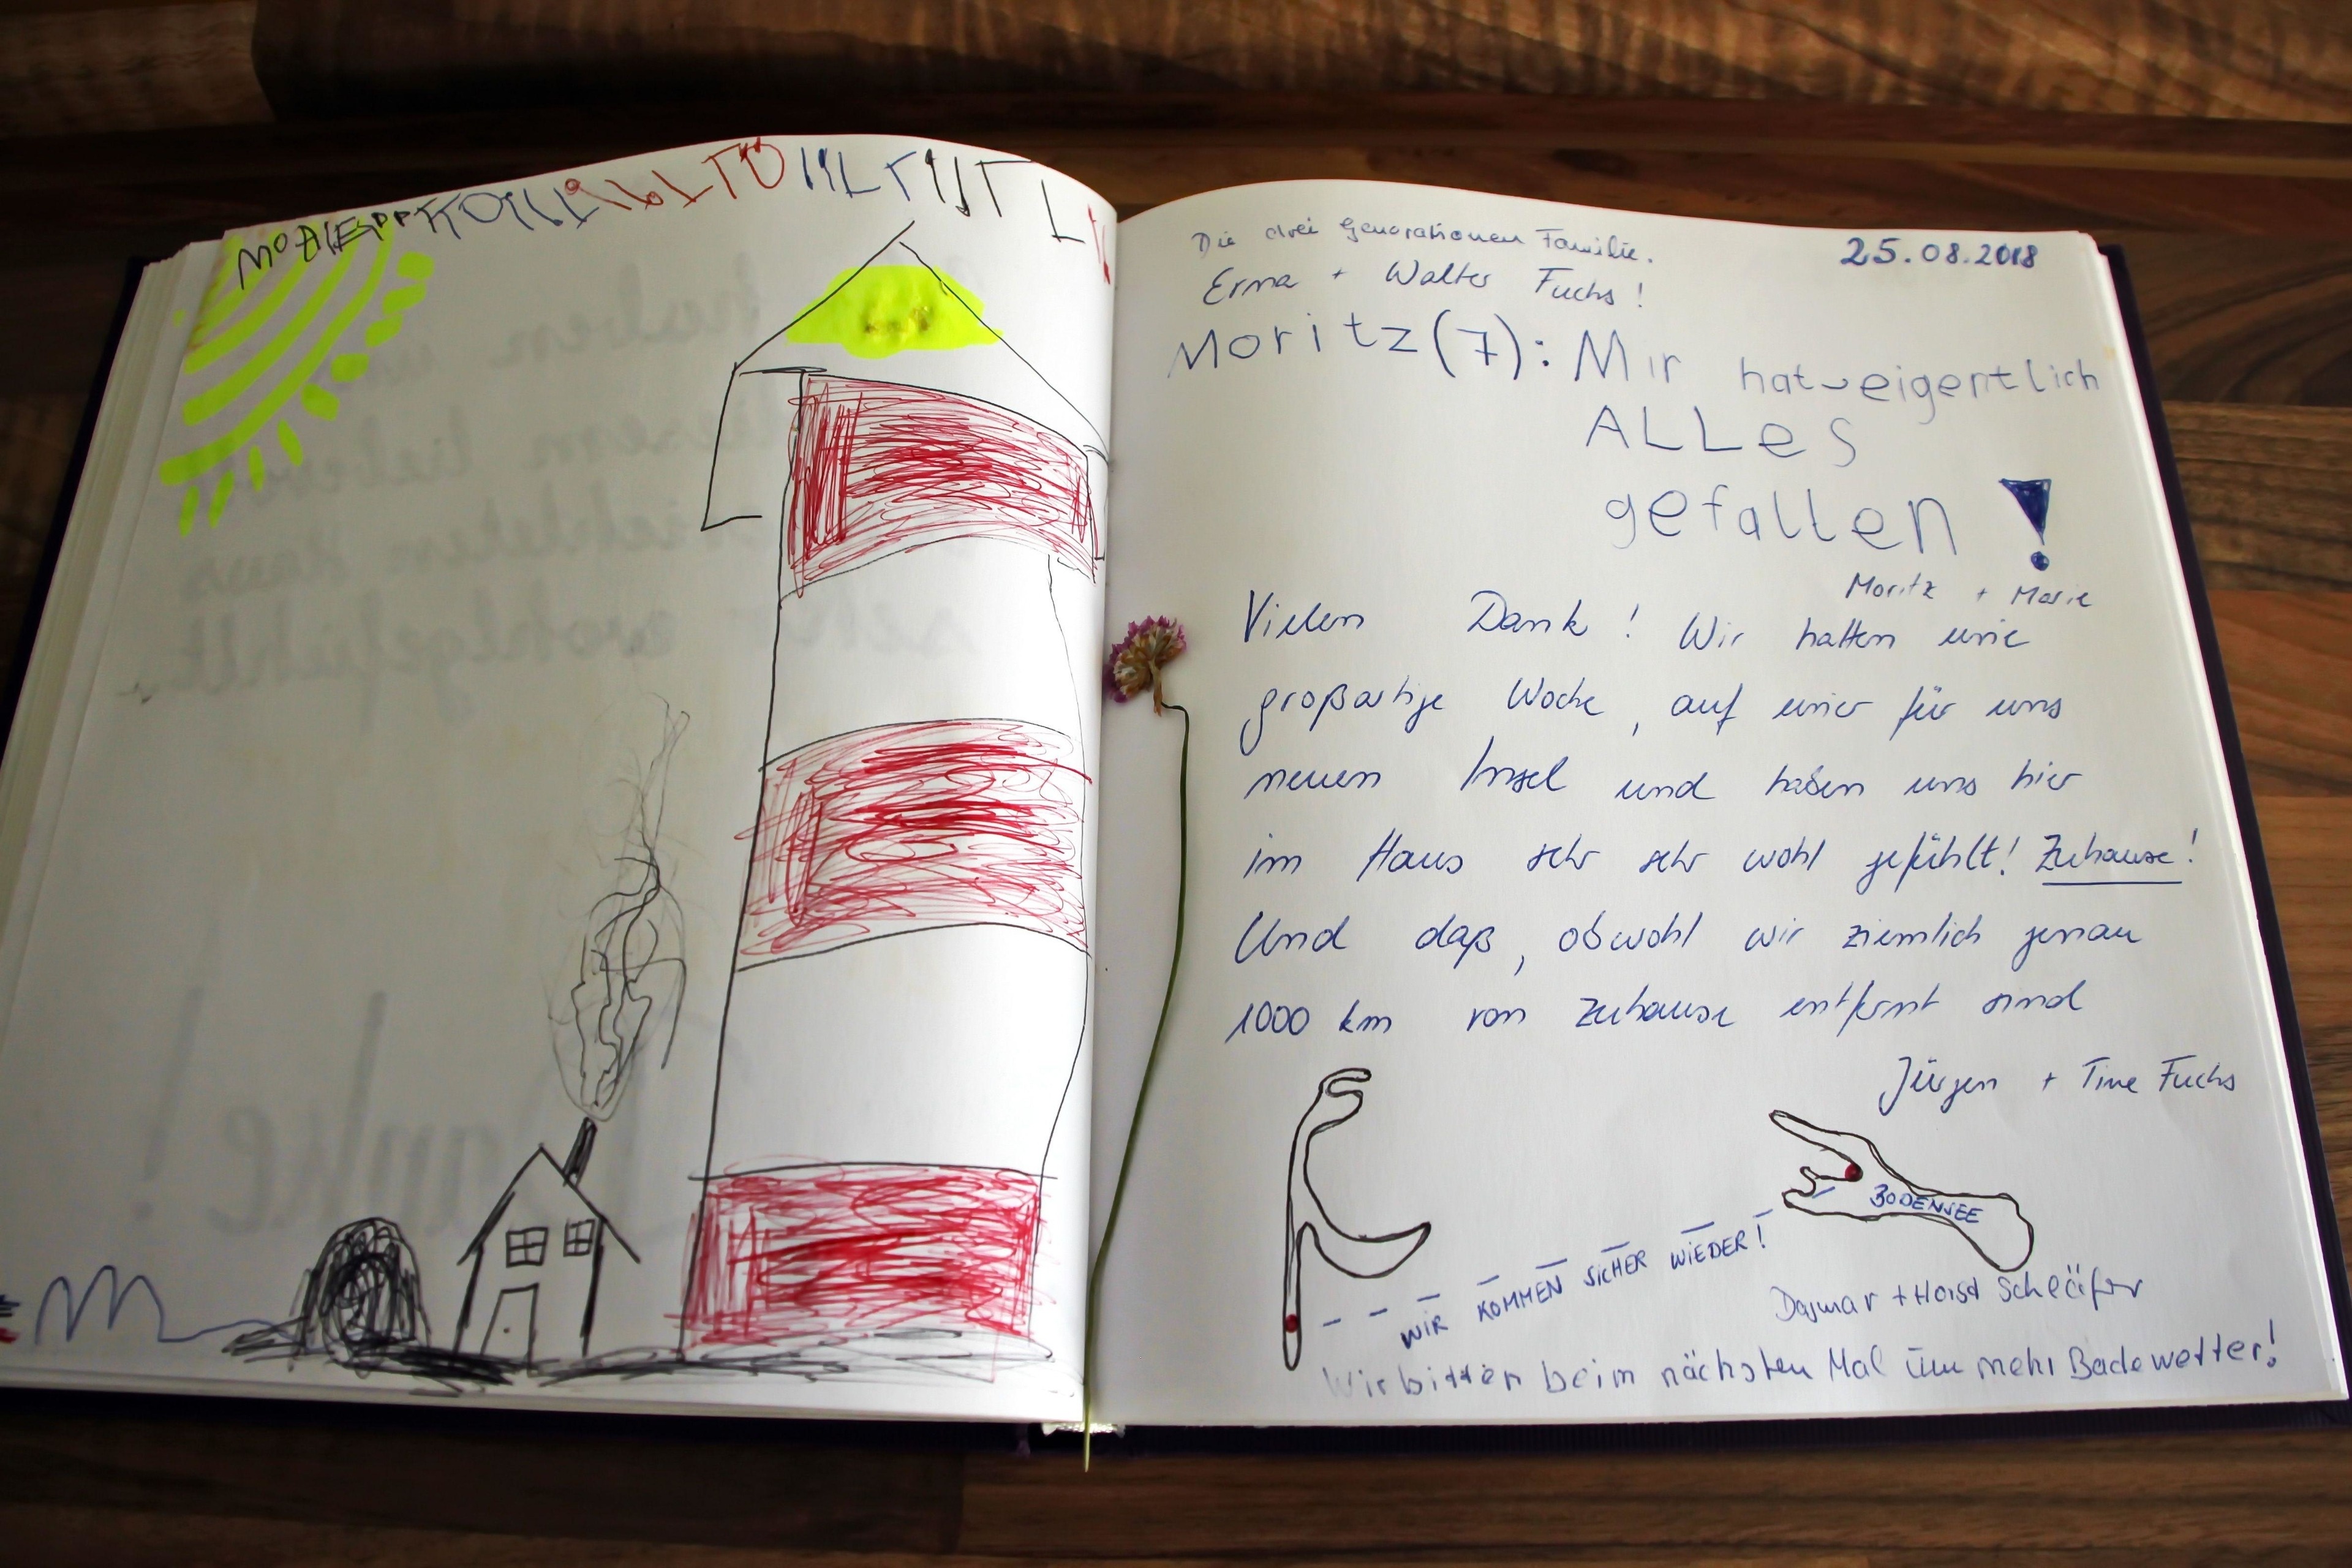 Die drei Generationen Familie.
Erna + Walter Fuchs!
25.08.2018
Moritz (7): Mir hat eigentlich
ALLes
gefallen!
Moritz + Marie
Vielen Dank! Wir hatten eine
großartige Woche, auf einer für uns
neuen Insel und haben uns hier
im Haus sehr sehr wohl gefühlt! Zuhause!
Und daß, obwohl wir ziemlich genau
1000 km von Zuhause entfernt sind
Jürgen + Tine Fuchs
BODENSEE
WIR KOMMEN SICHER WIEDER!
Dagmar + Horst Schläfer
Wir bitten beim nächsten Mal um mehr Badewetter!